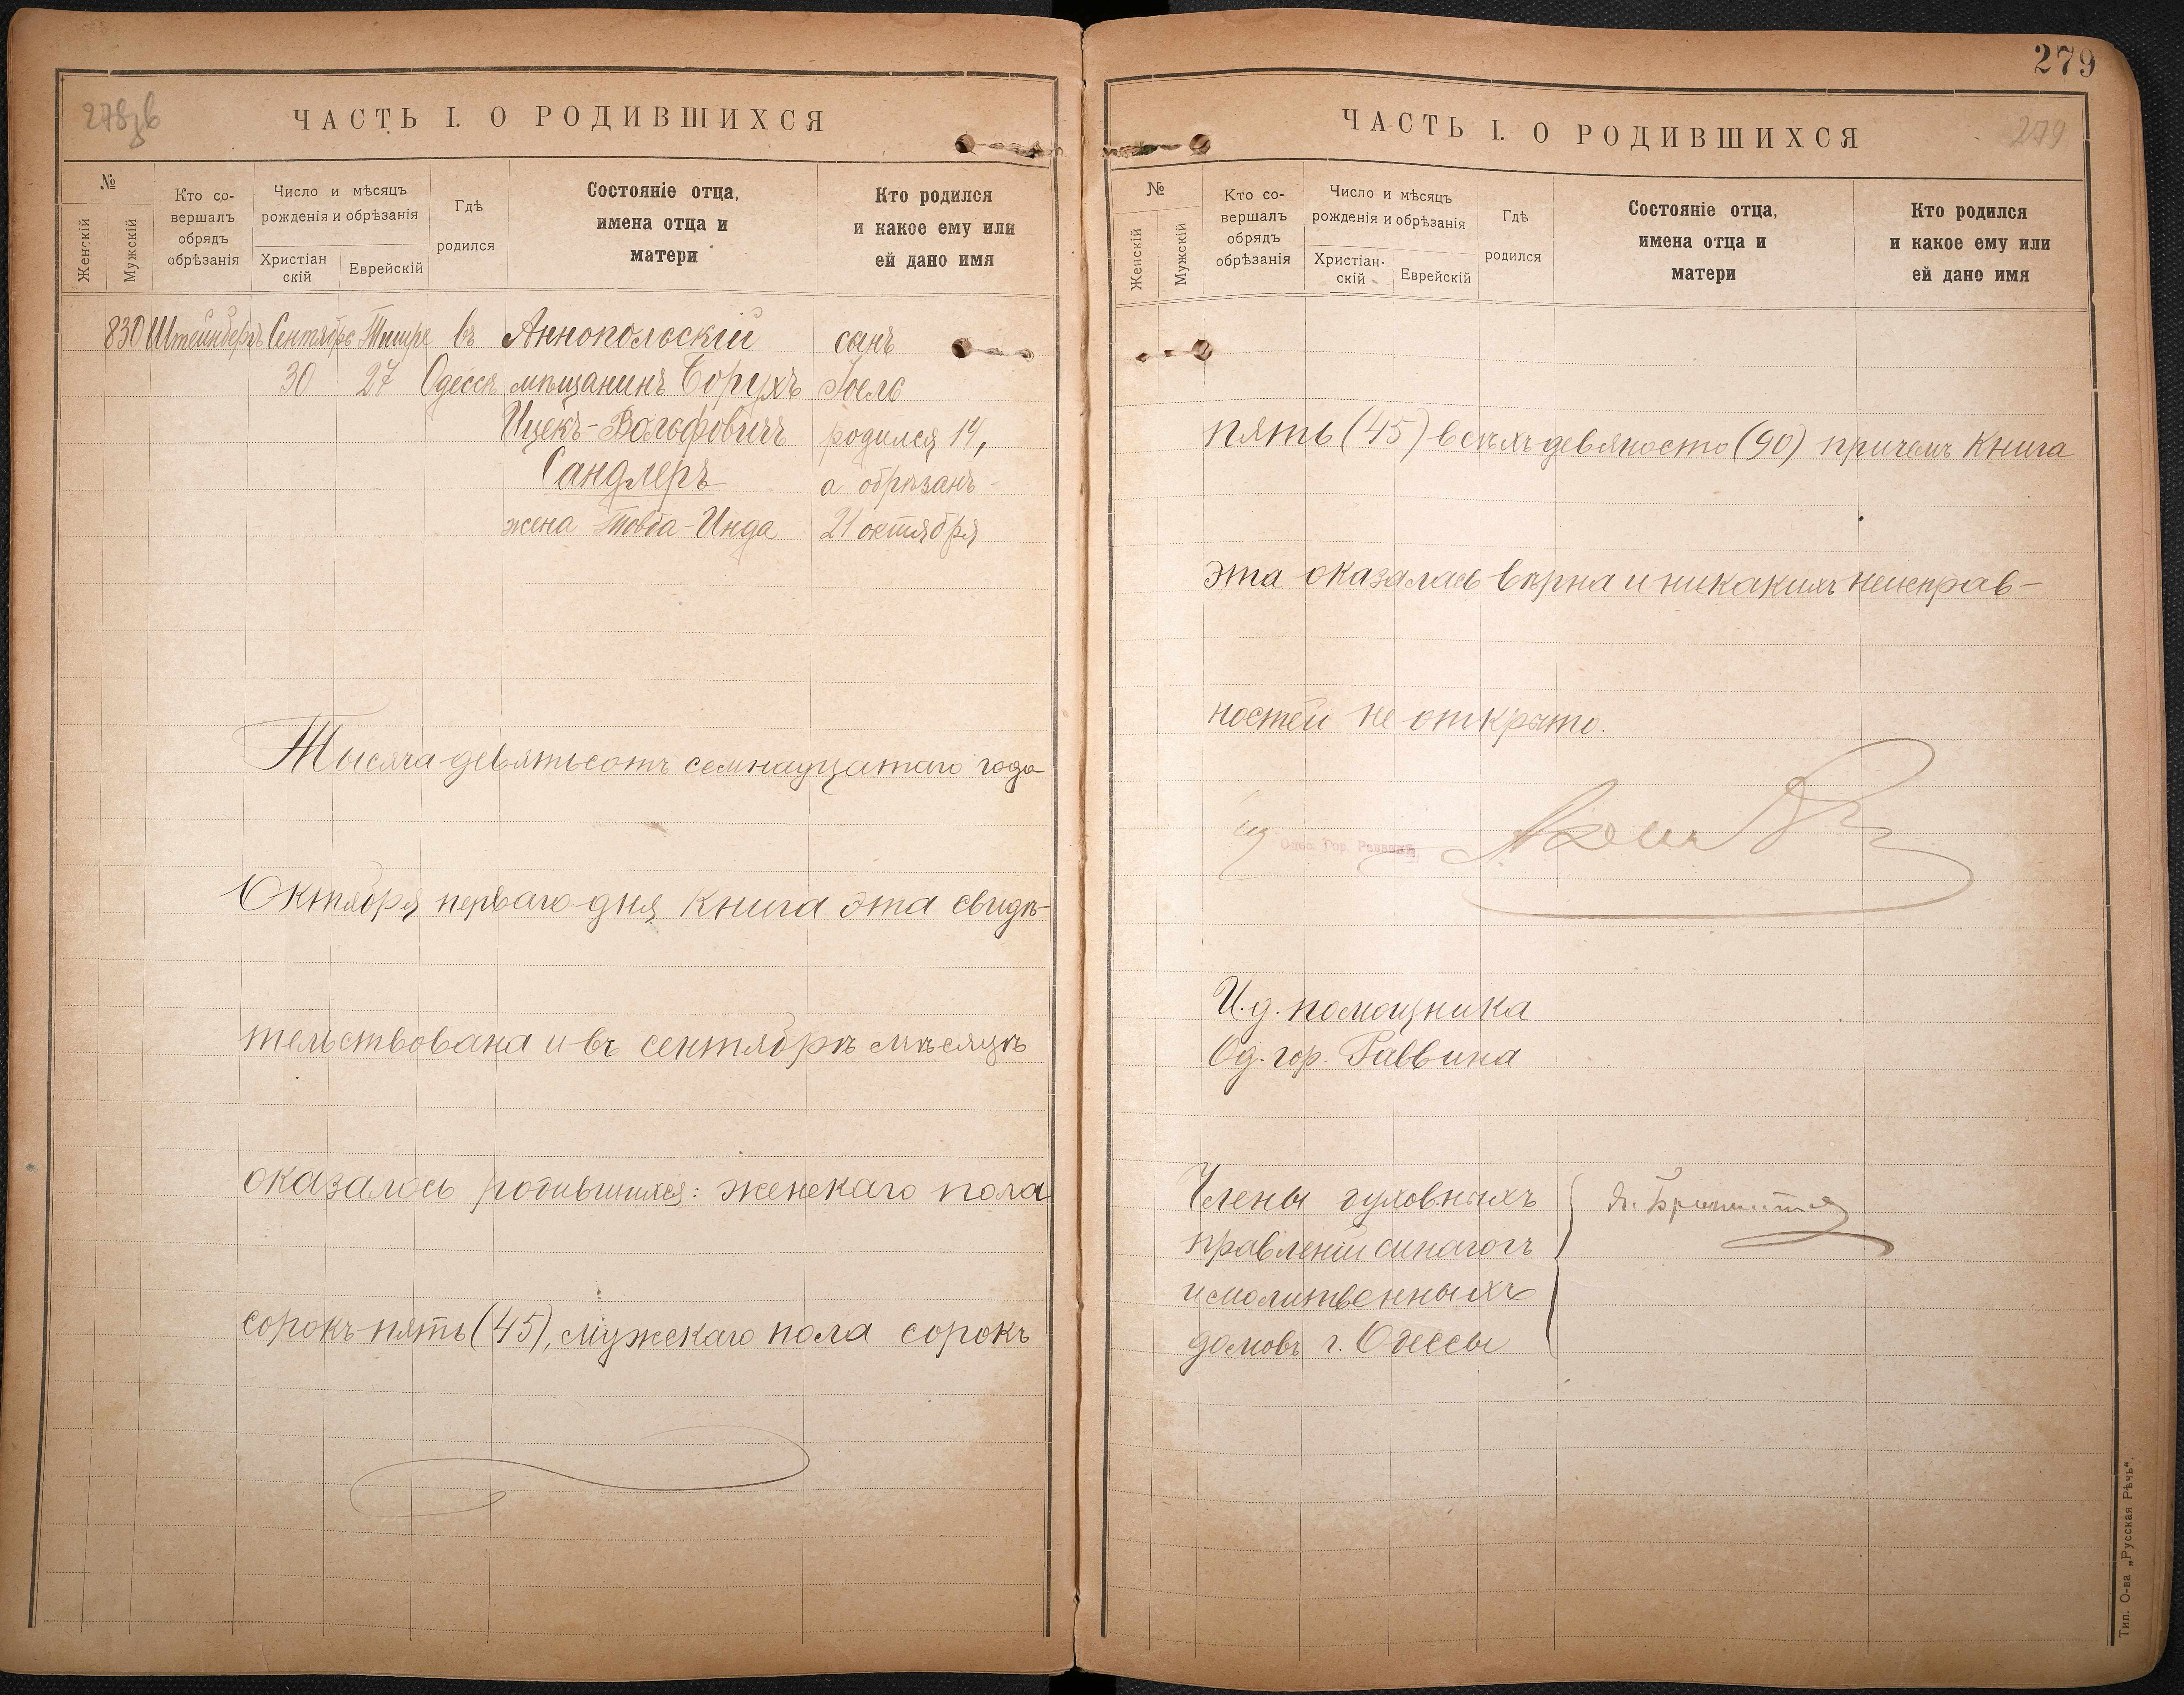 279
ЧАСТЬ I. О РОДИВШИХСЯ
№
Женскій
Мужскій
Кто со-
вершалъ
обрядъ
обрѣзанія
Число и мѣсяцъ
рожденія и обрѣзанія
Христіан
скій
Еврейскій
Гдѣ
родился
Состояніе отца,
имена отца и
матери
Кто родился
и какое ему или
ей дано имя
830 Штейнбергъ Сентябрь Тишре въ Аннопольскій сынъ
30 27 Одессѣ мѣщанинъ Борухъ Іоель
Ицекъ-Вольфовичъ родился 14,
Сандлеръ а обрѣзанъ
жена Товба-Инда 21 октября
Тысяча девятьсотъ семнадцатаго года
Октября перваго дня книга эта свидѣ-
тельствована и въ сентябрѣ мѣсяцѣ
оказалось родившихся: женскаго пола
сорокъ пять (45), мужскаго пола сорокъ
ЧАСТЬ I. О РОДИВШИХСЯ
279
№
Женскій
Мужскій
Кто со-
вершалъ
обрядъ
обрѣзанія
Число и мѣсяцъ
рожденія и обрѣзанія
Христіан-
скій
Еврейскій
Гдѣ
родился
Состояніе отца,
имена отца и
матери
Кто родился
и какое ему или
ей дано имя
пять (45) всѣхъ девяносто (90) причемъ книга
эта оказалась вѣрна и никакихъ неисправ-
ностей не открыто.
Гор. Раввинъ
И.д. помощника
Од. гор. Раввина
Члены духовныхъ
правленій синагогъ
и молитвенныхъ
домовъ г. Одессы
Тип. О-ва „Русская Рѣчь“.